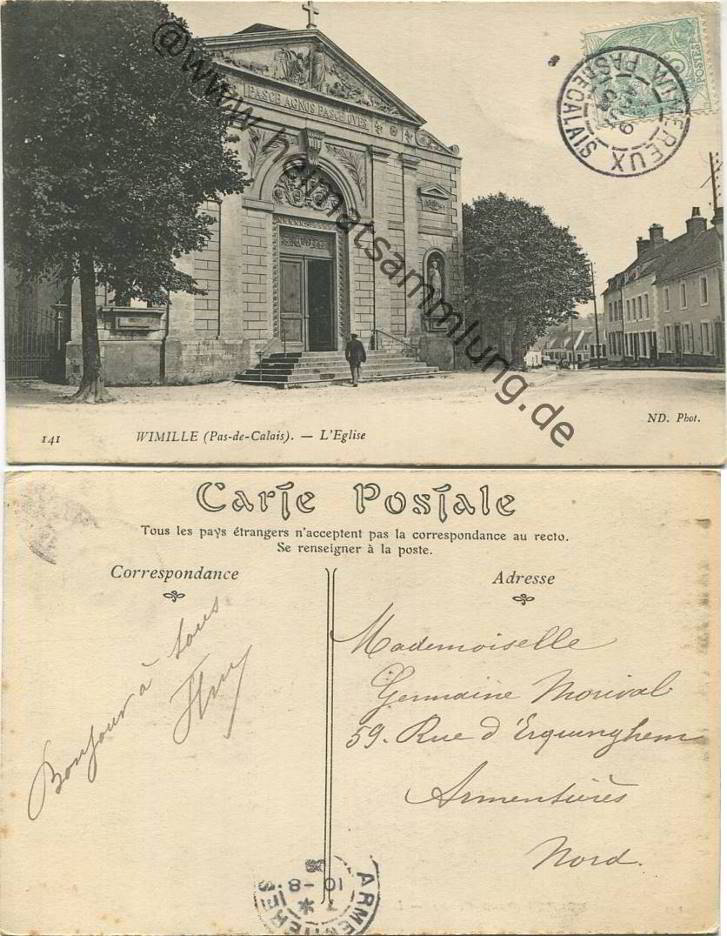 @www.heimatsammlung.de
PASCE AGNOS PASCE OVES
WIMEREUX
PAS-DE-CALAIS
141 WIMILLE (Pas-de-Calais). — L'Eglise
ND. Phot.
Carte Postale
Tous les pays étrangers n'acceptent pas la correspondance au recto.
Se renseigner à la poste.
Correspondance
Bonjour à tous
Adresse
Mademoiselle
Germaine Morival
59. Rue d'Erquinghem
Armentières
Nord.
ARMENTIERES
10-8